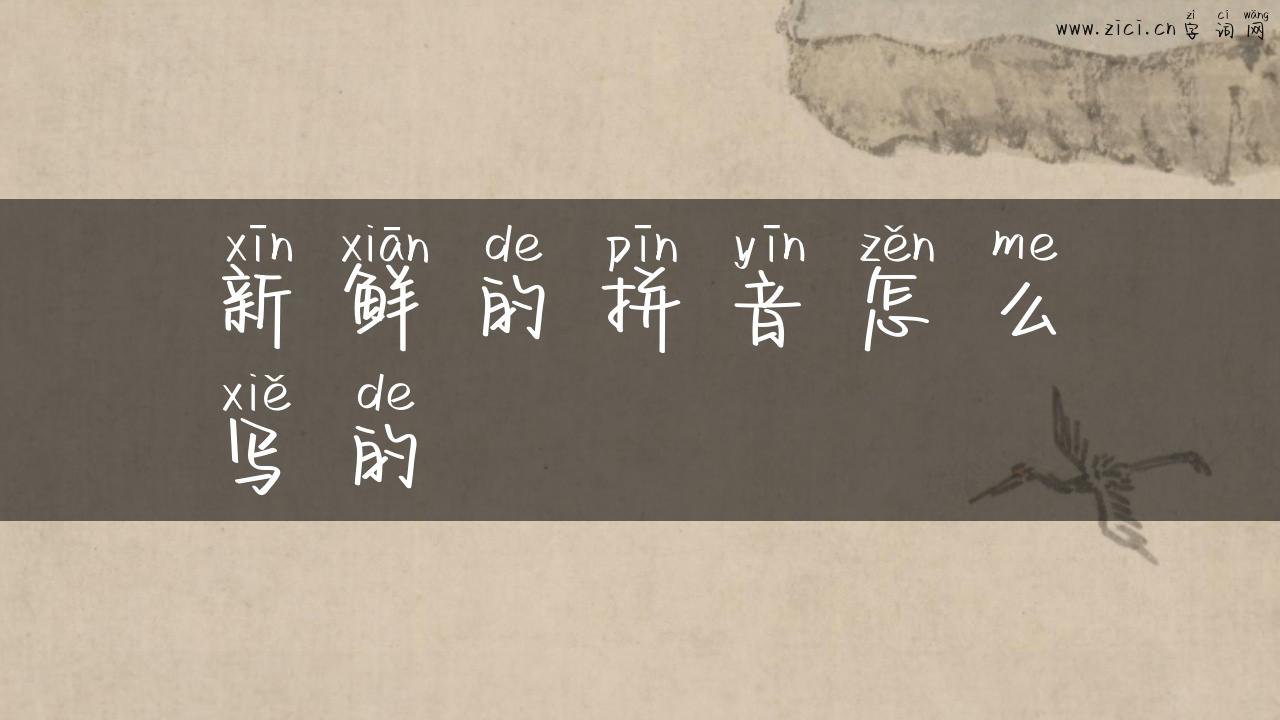 zì cí wǎng
www.zici.cn 字词网
xīn xiān de pīn yīn zěn me
新鲜的拼音怎么
xiě de
写的